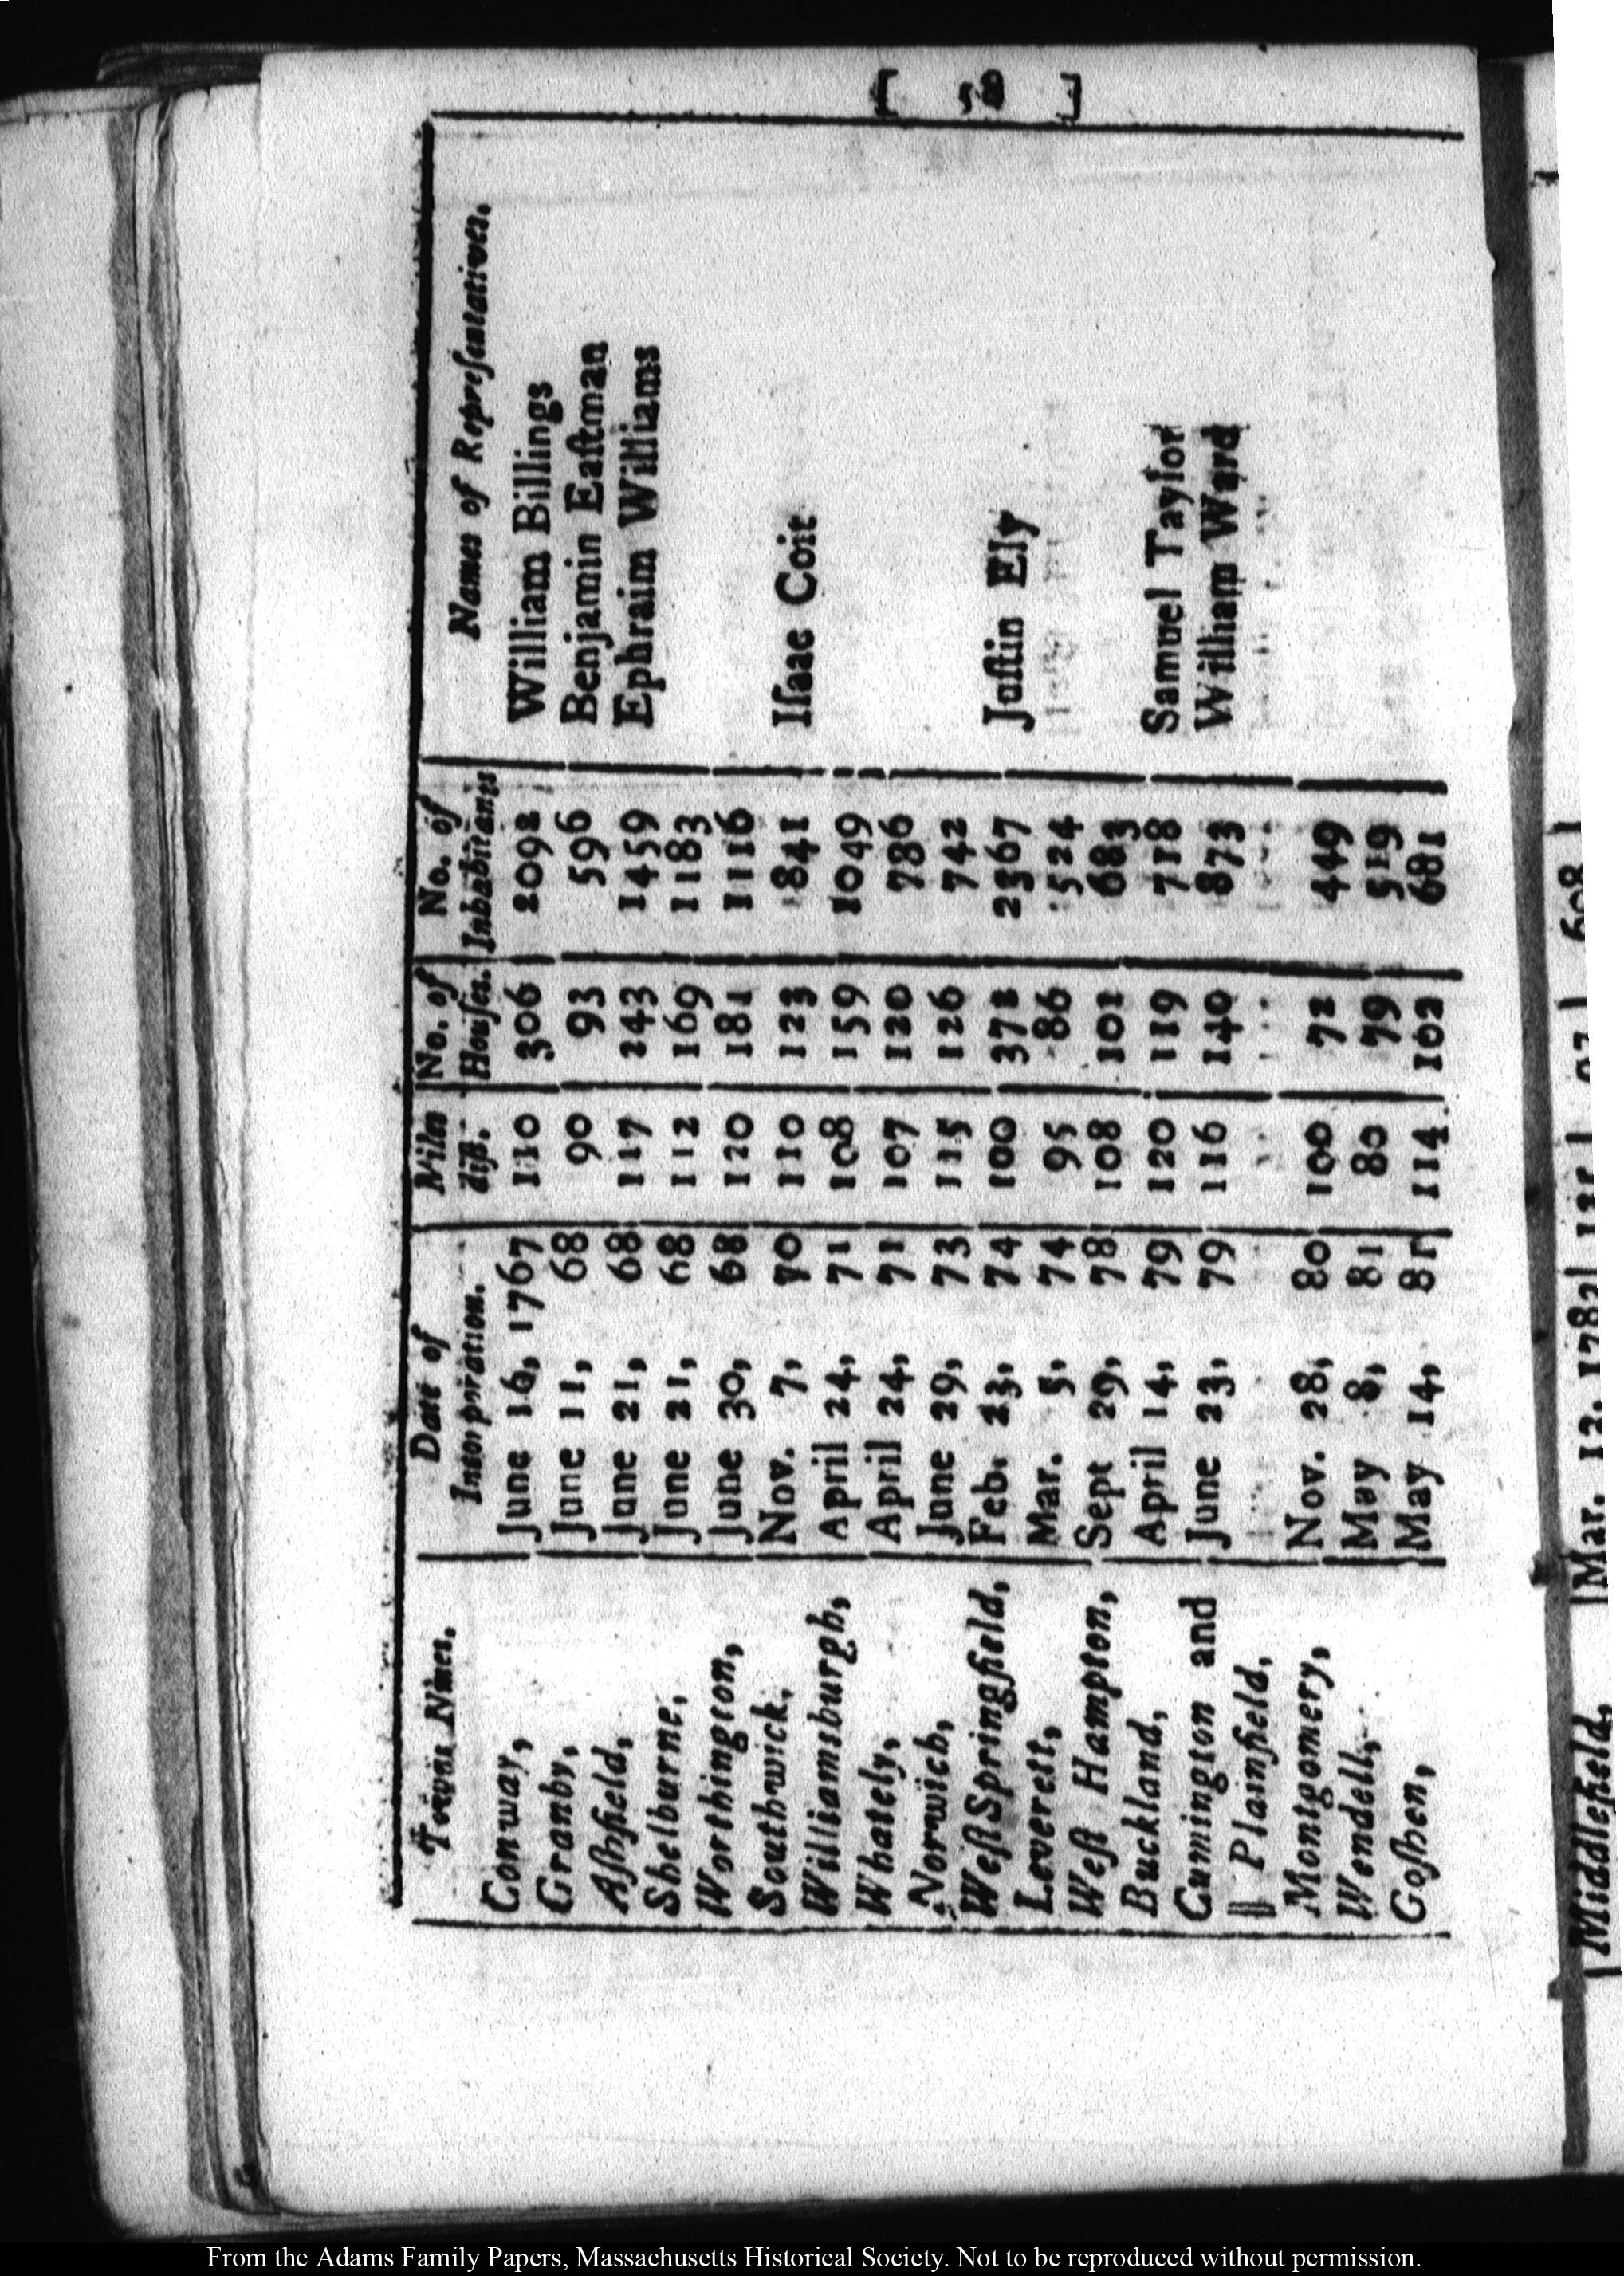 [ 58 ]
Towns Names. Date of Incorporation. Miles dist. No. of Houses. No. of Inhabitants Names of Repreſentatives.
Conway, June 16, 1767 110 306 2092 William Billings
Granby, June 11, 68 90 93 596 Benjamin Eaſtman
Aſhfield, June 21, 68 117 243 1459 Ephraim Williams
Shelburne, June 21, 68 112 169 1183
Worthington, June 30, 68 120 181 1116
Southwick, Nov. 7, 70 110 123 841 Iſaac Coit
Williamsburgh, April 24, 71 108 159 1049
Whately, April 24, 71 107 120 786
Norwich, June 29, 73 115 126 742
Weſt Springfield, Feb. 23, 74 100 372 2367 Juſtin Ely
Leverett, Mar. 5, 74 95 86 524
Weſt Hampton, Sept 29, 78 108 102 683
Buckland, April 14, 79 120 119 718 Samuel Taylor
Cumington and June 23, 79 116 140 873 William Ward
|| Plainfield,
Montgomery, Nov. 28, 80 100 72 449
Wendell, May 8, 81 80 79 519
Goſhen, May 14, 81 114 102 681
Middlefield, Mar. 12, 1783
From the Adams Family Papers, Massachusetts Historical Society. Not to be reproduced without permission.